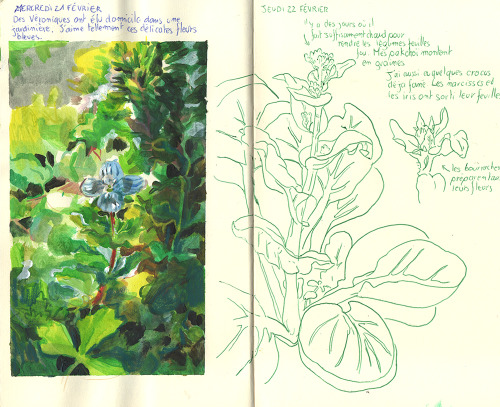 MERCREDI 21 FÉVRIER
Des Véroniques ont élu domicile dans une
jardinière, J'aime tellement ces délicates fleurs
bleues.
JEUDI 22 FÉVRIER
il y a des jours où il
fait suffisamment chaud pour
rendre les légumes feuilles
fou. Mes pakchoi montent
en graines
J'ai aussi quelques crocus
déjà fané. Les narcisses et
les iris ont sorti leur feuilles
les bourraches
préparent
leurs fleurs